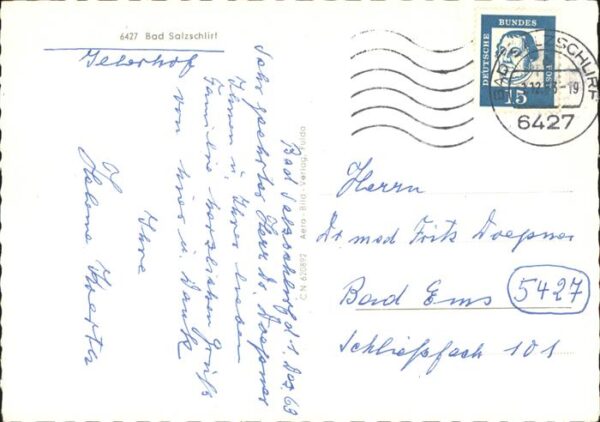 6427 Bad Salzschlirf
Bad Salzschlirf d 1. Dez. 63
Sehr geehrter Herr Dr. Doepner
Ihnen u. Ihrer lieben
Familie herzlichen Gruß
von hier u. Dank
Ihre
Helene
CN 620892 Aero-Bild-Verlag, Fulda
DEUTSCHE BUNDESPOST
15
BAD SALZSCHLIRF
-19
6427
Herrn
Dr med Fritz Doepner
Bad Ems 5427
Schließfach 101